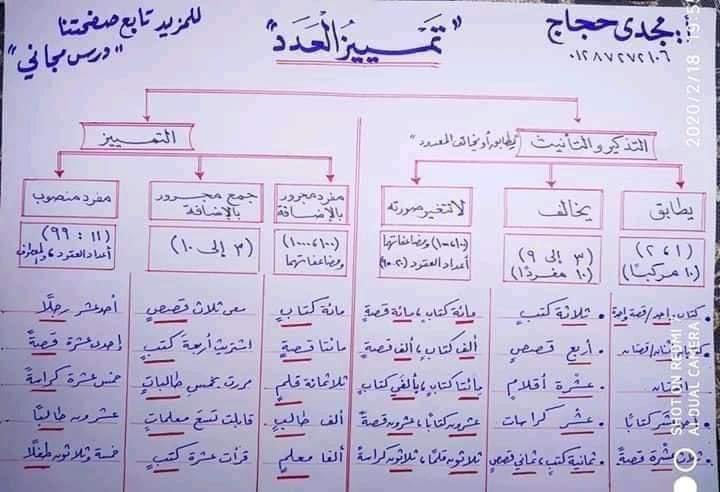 أ.. مجدى حجاج
٠١٢٨٧٢٧٢١٠٦
"تمييز العدد"
للمزيد تابع صفحتنا
"درس مجاني"
التذكير والتأنيث
"يطابق أو يخالف المعدود"
التمييز
يطابق
يخالف
لا تتغير صورته
مفرد مجرور
بالإضافة
جمع مجرور
بالإضافة
مفرد منصوب
(١، ٢)
(١٠ مركبًا)
(٣ إلى ٩)
(١٠ مفردًا)
ومضاعفاتها
أعداد العقود (٢٠-٩٠)
(١٠٠، ١٠٠٠)
ومضاعفاتهما
(٣ إلى ١٠)
(١١ : ٩٩)
أعداد العقود
كتاب واحد / قصة واحدة
• ثلاثة كتبٍ
مائة كتابٍ، مائة قصةٍ
مائة كتابٍ
معى ثلاث قصصٍ
أحد عشر رجلًا
قصتان
• أربع قصصٍ
ألف كتابٍ، ألف قصةٍ
مائتا قصةٍ
اشتريت أربعة كتبٍ
إحدى عشرة قصةً
• عشرة أقلامٍ
مائتا كتابٍ، ألفي كتابٍ
ثلاثمائة قلمٍ
مررت بخمس طالباتٍ
خمس عشرة كراسةً
عشر كتابًا
• عشر كراسات
عشرون كتابًا، عشرون قصةً
ألف طالبٍ
قابلت تسعَ معلماتٍ
عشرون طالبًا
عشرة قصةً
• ثمانية كتبٍ، ثماني قصصٍ
ثلاثون قلمًا، ثلاثون كراسةً
ألفا معلمٍ
قرأت عشرة كتبٍ
خمسة وثلاثون طفلًا
2020/2/18
SHOT ON REDMI
AI DUAL CAMERA